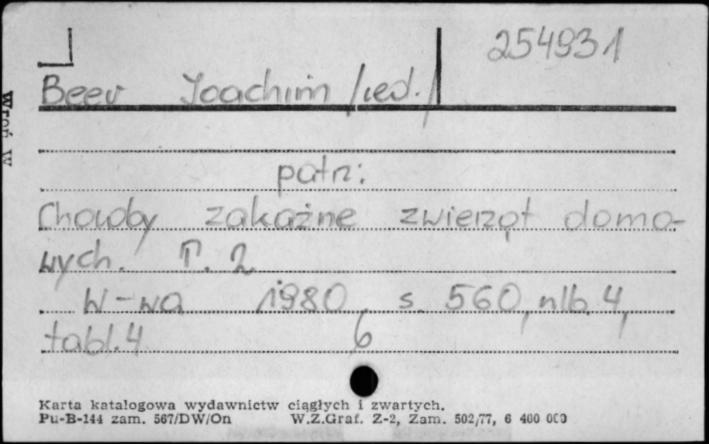 254931
Beer Joachim /red./
patrz:
Choroby zakaźne zwierząt domo-
wych. T. 2
W-wa 1980, s. 560, nlb. 4,
tabl. 4 6
Karta katalogowa wydawnictw ciągłych i zwartych.
Pu-B-144 zam. 567/DW/On W.Z.Graf. Z-2, Zam. 502/77, 6 400 000